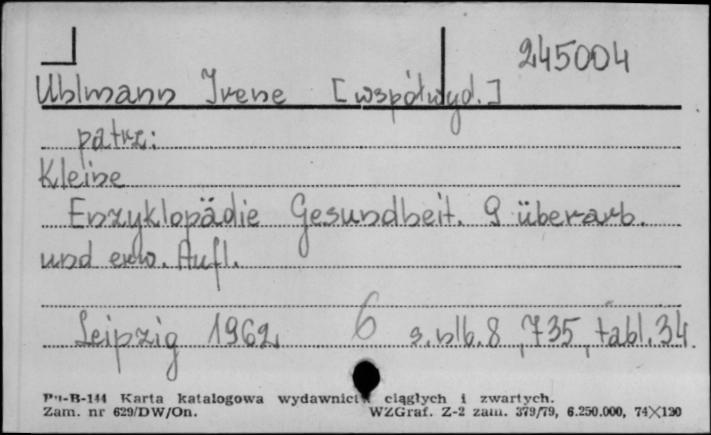 245004
Uhlmann Irene [współwyd.]
patrz:
Kleine
Enzyklopädie Gesundheit. 9 überarb.
und erw. Aufl.
Leipzig 1962. 6 s.nlb.8, 735, tabl.34.
Pu-B-144 Karta katalogowa wydawnictw ciągłych i zwartych.
Zam. nr 629/DW/On. WZGraf. Z-2 zam. 379/79, 6.250.000, 74×120